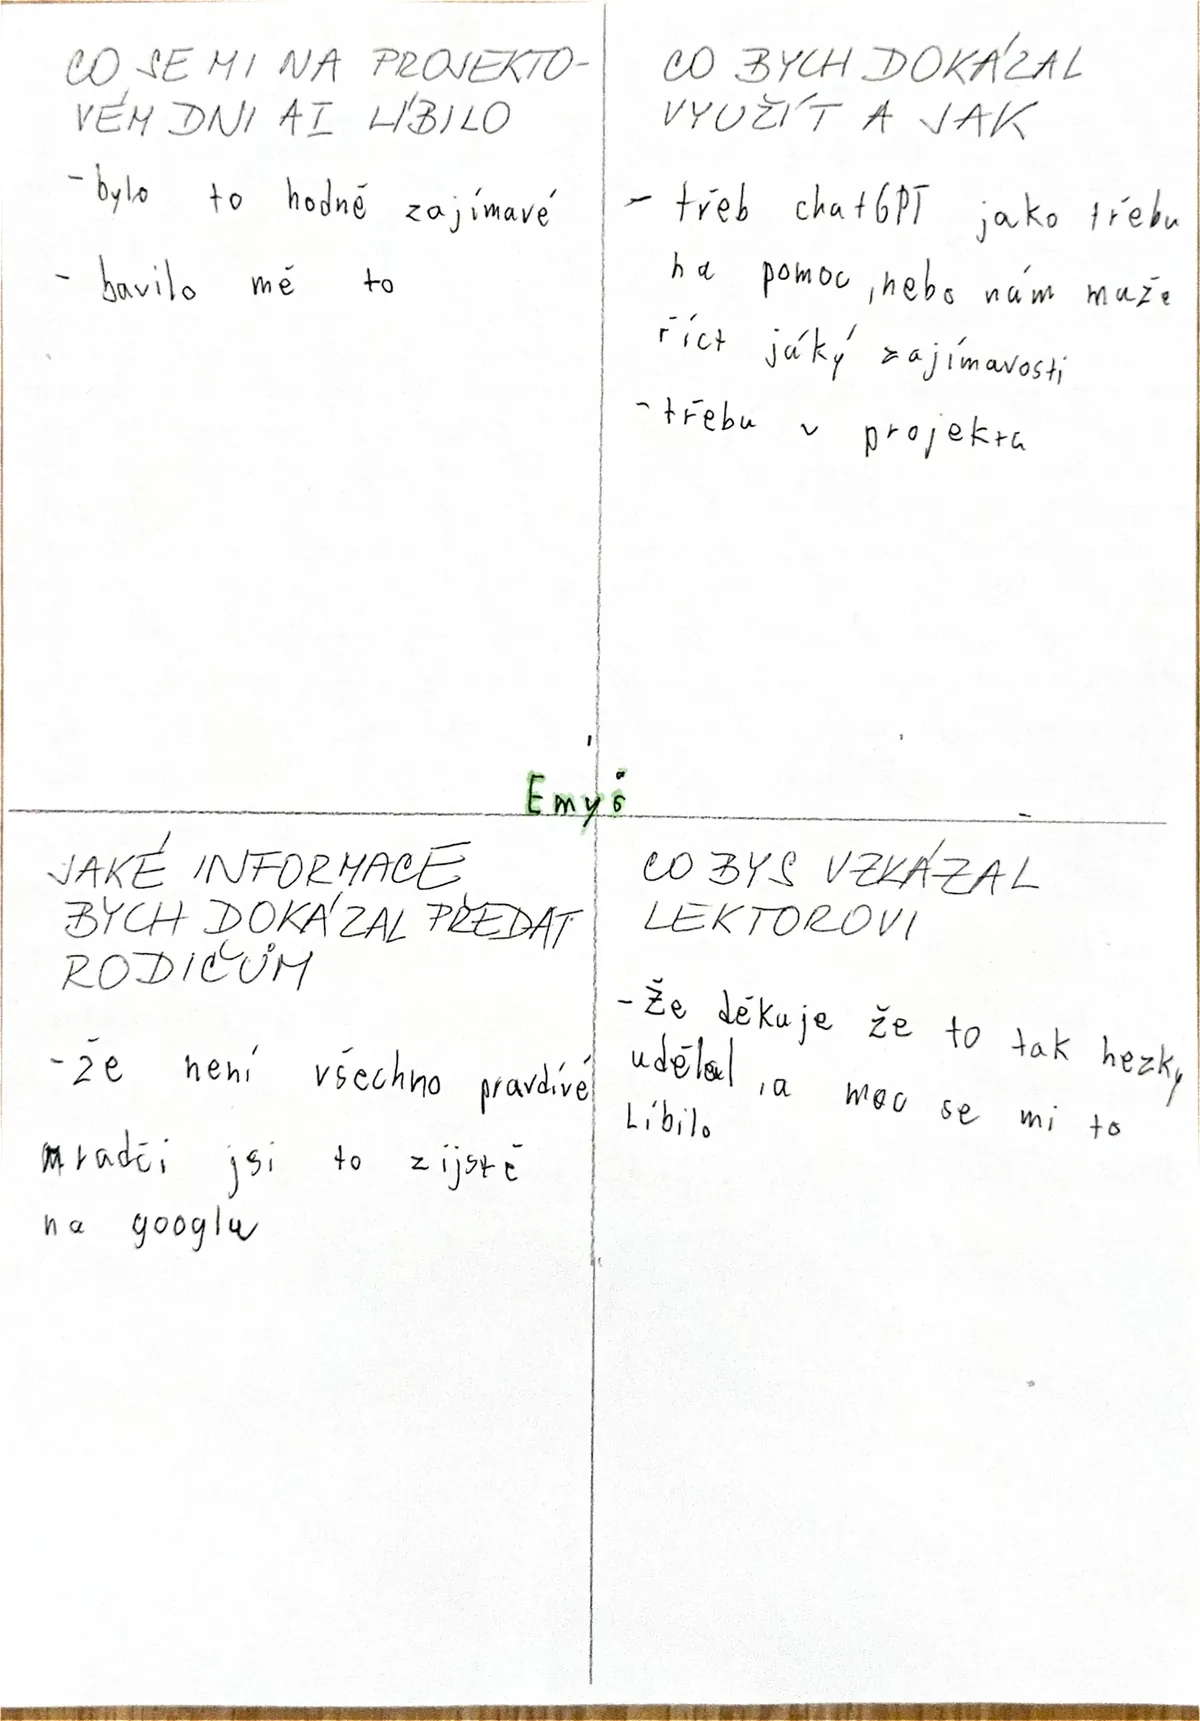 CO SE MI NA PROJEKTO-
VÉM DNI AI LÍBILO
- bylo to hodně zajímavé
- bavilo mě to
CO BYCH DOKÁZAL
VYUŽÍT A JAK
- třeb chatGPT jako třebu
na pomoc, nebo nám muže
říct jáký zajímavosti
- třebu v projektu
Emyš
JAKÉ INFORMACE
BYCH DOKÁZAL PŘEDAT
RODIČŮM
- že není všechno pravdívé
mradči jsi to zijstě
na googlu
CO BYS VZKÁZAL
LEKTOROVI
- Že děkuje že to tak hezky
udělal, a moc se mi to
Líbilo